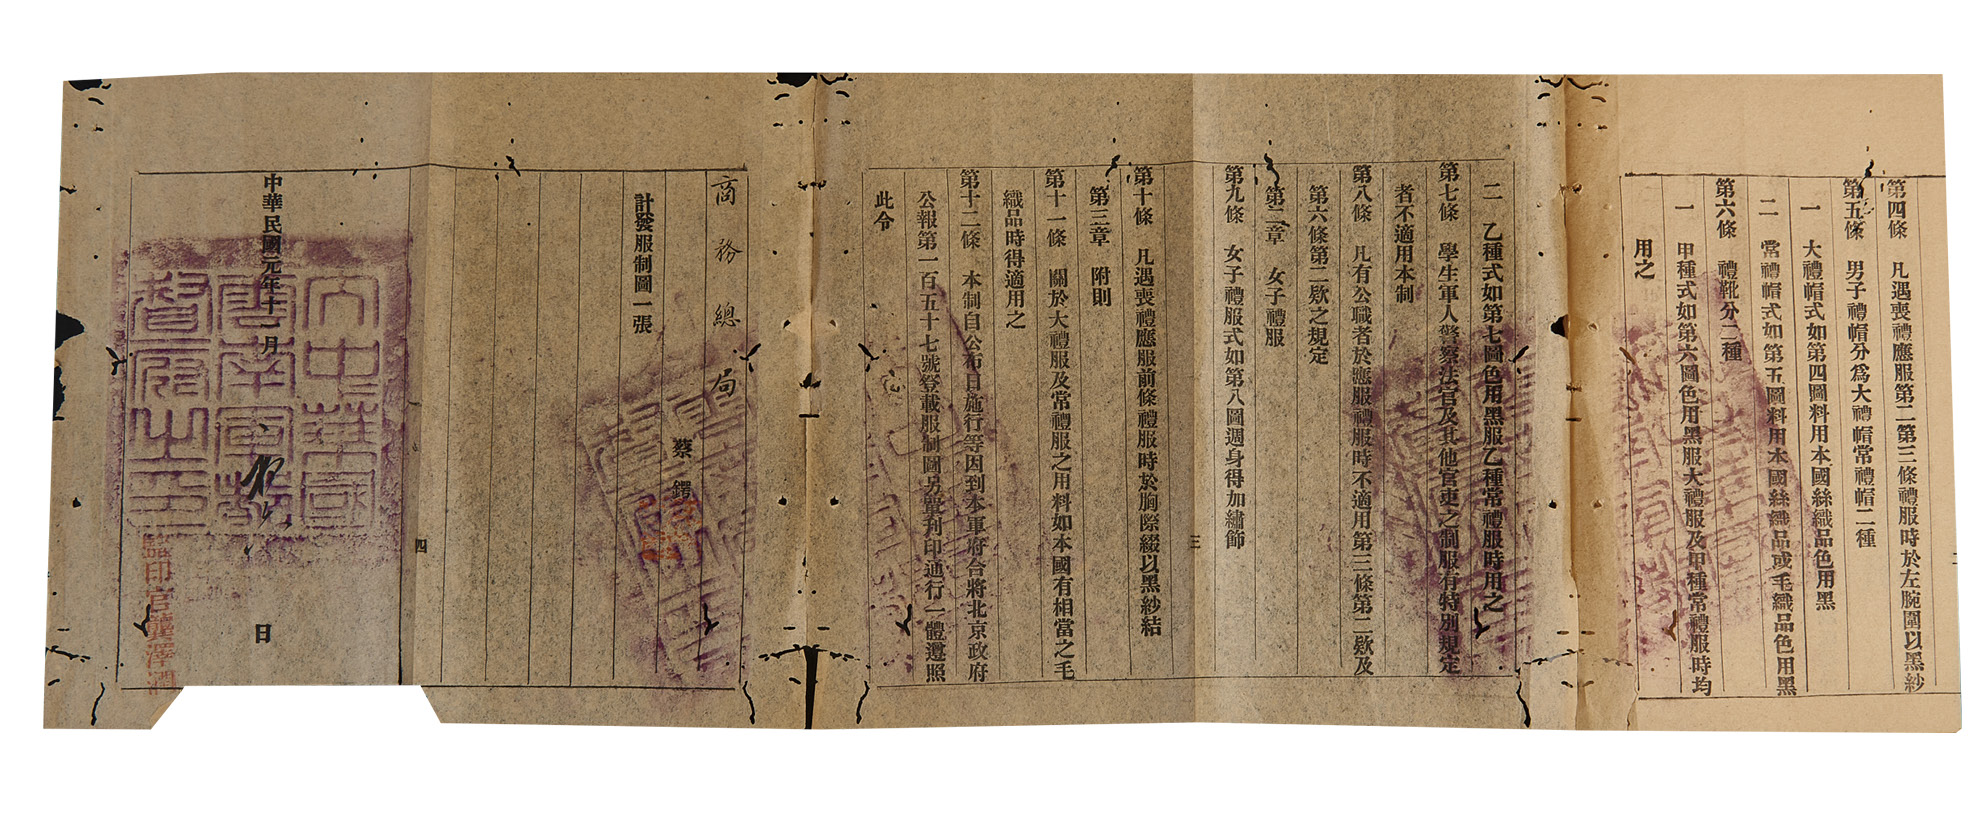 第四條　凡遇喪禮應服第二第三條禮服時於左腕圍以黑紗
第五條　男子禮帽分爲大禮帽常禮帽二種
一　大禮帽式如第四圖料用本國絲織品色用黑
二　常禮帽式如第五圖料用本國絲織品或毛織品色用黑
第六條　禮靴分二種
一　甲種式如第六圖色用黑服大禮服及甲種常禮服時均
用之
二
二　乙種式如第七圖色用黑服乙種常禮服時用之
第七條　學生軍人警察法官及其他官吏之制服有特別規定
者不適用本制
第八條　凡有公職者於應服禮服時不適用第三條第二欵及
第六條第二欵之規定
第二章　女子禮服
第九條　女子禮服式如第八圖週身得加繡飾
三
第十條　凡遇喪禮應服前條禮服時於胸際綴以黑紗結
第三章　附則
第十一條　關於大禮服及常禮服之用料如本國有相當之毛
織品時得適用之
第十二條　本制自公布日施行等因到本軍府合將北京政府
公報第一百五十七號登載服制圖另單刋印通行一體遵照
此令
商務總局
蔡鍔
計發服制圖一張
四
中華民國元年十一月　日
大中華國雲南軍都督府之印
監印官龔澤潤